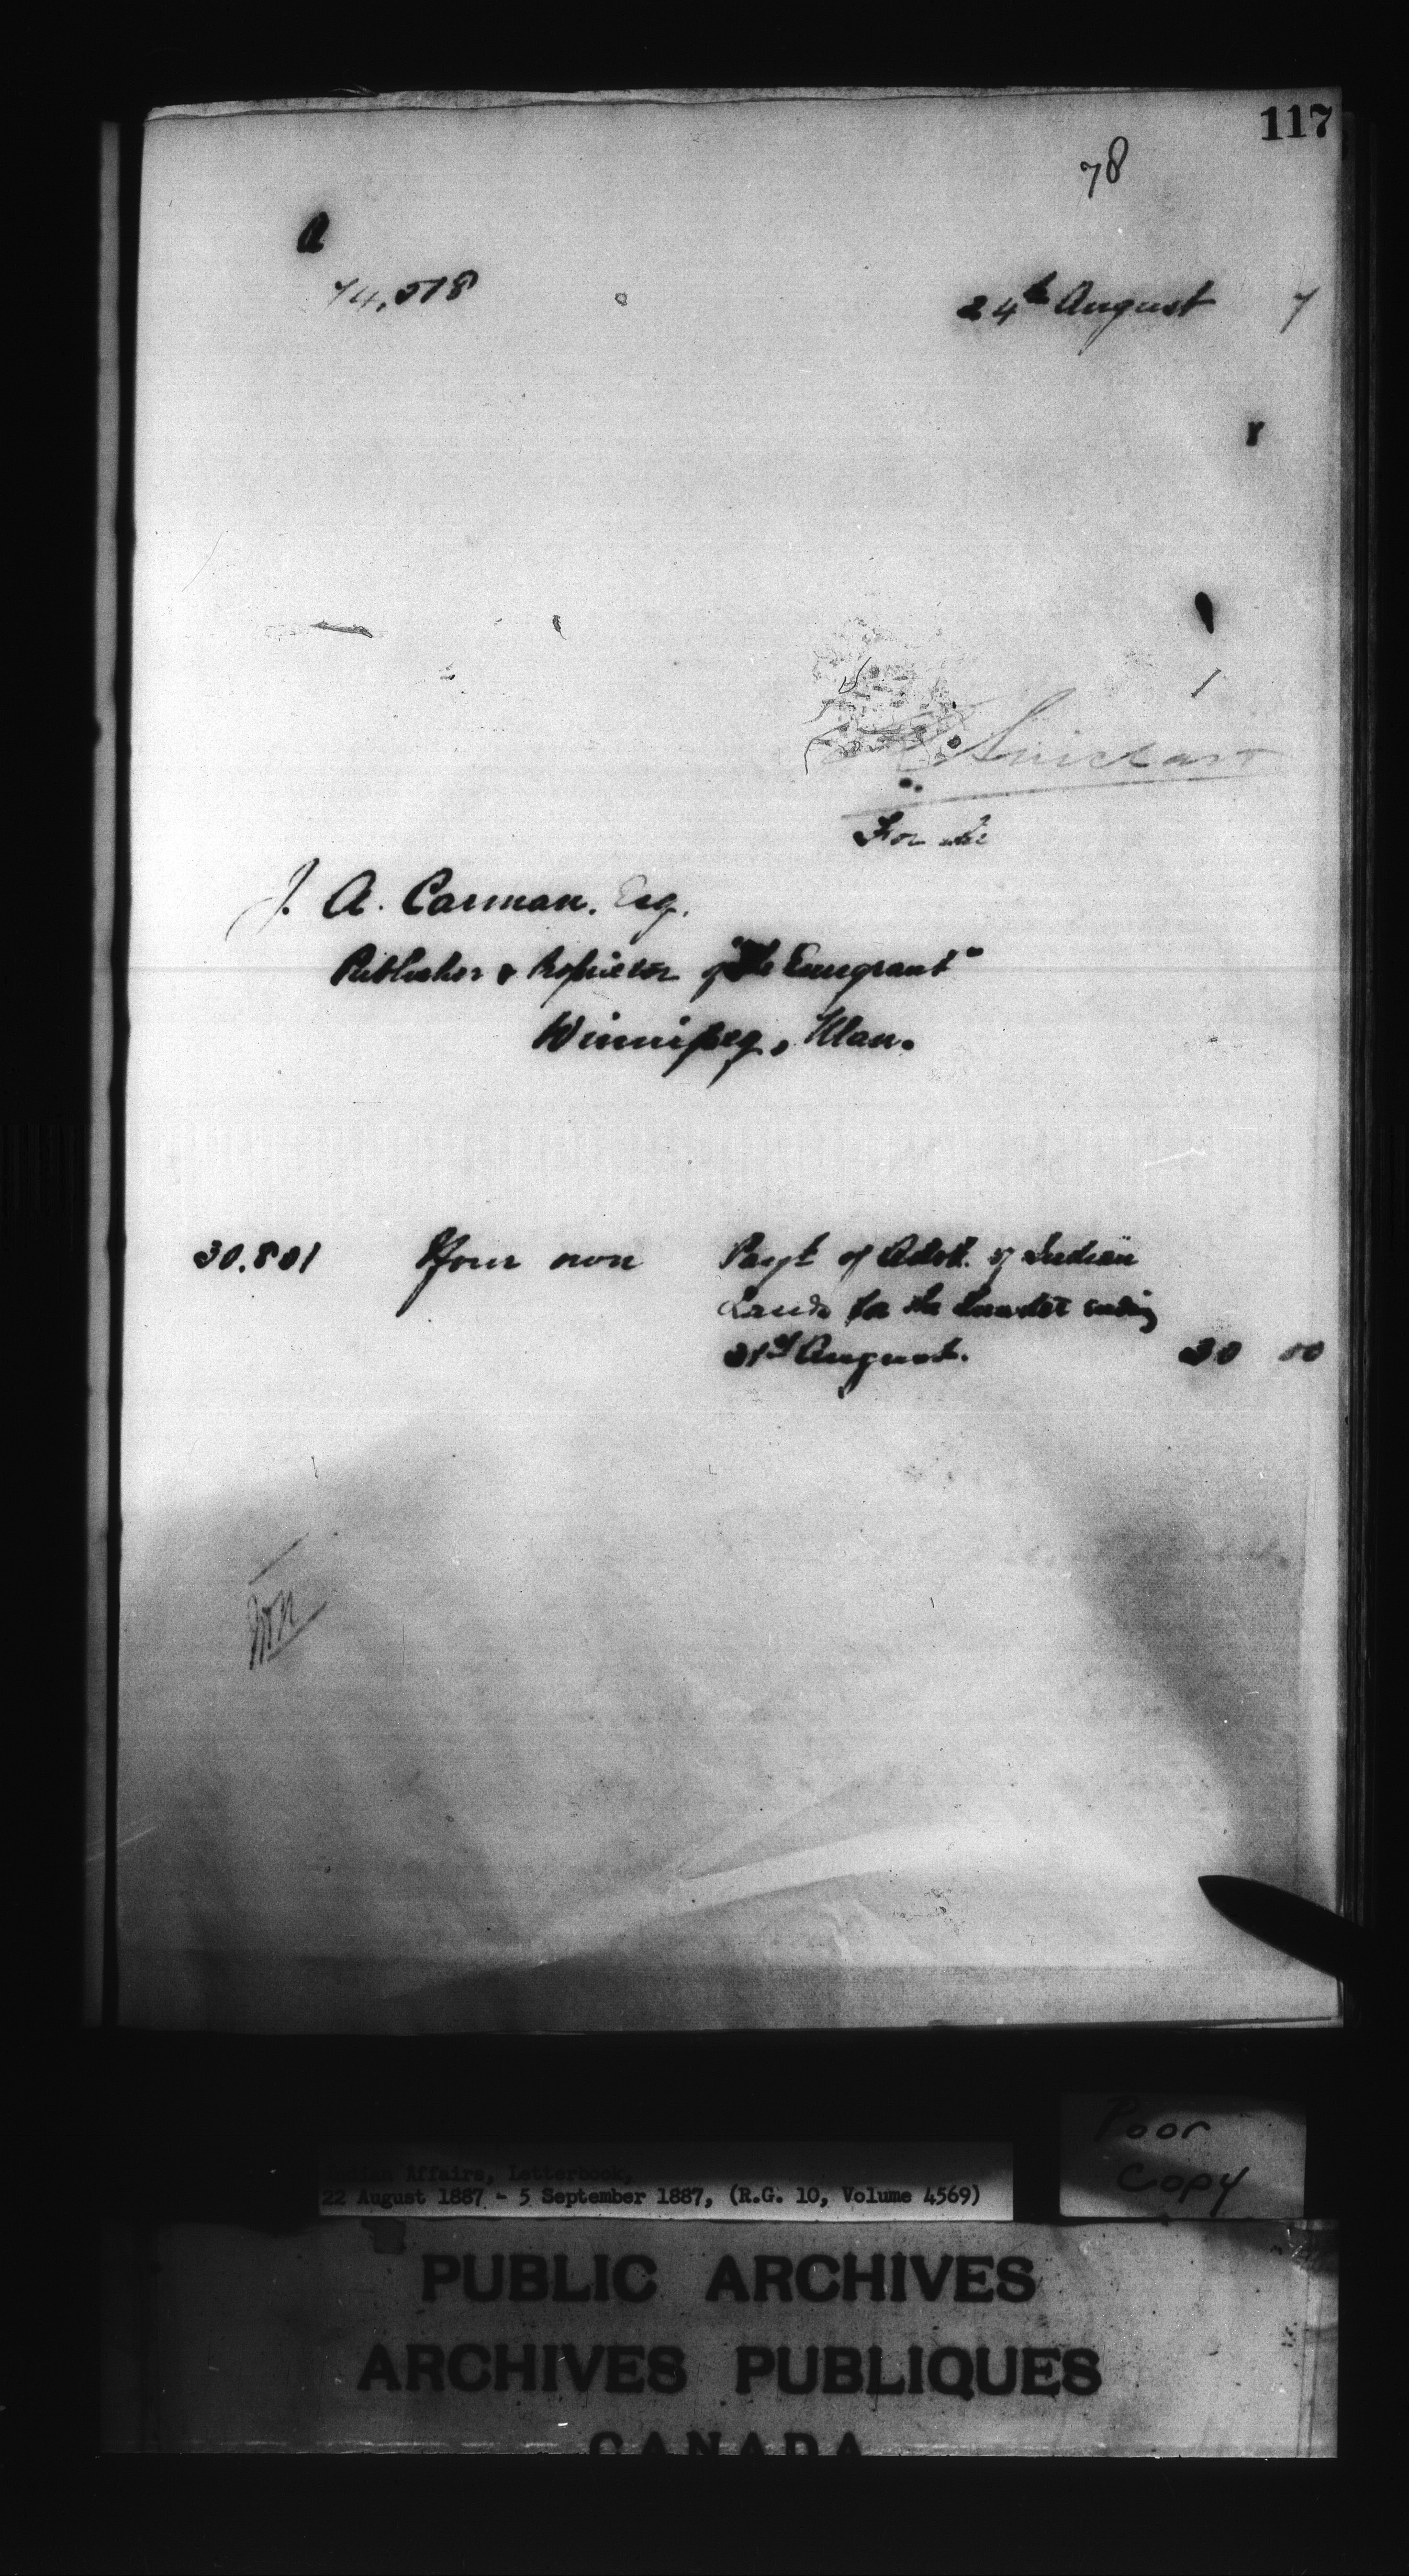 117
78
74,518
24th August 7
For the
J. A. Carman. Esq.
Publisher & Proprietor of "The Emigrant"
Winnipeg, Man.
30.801 Your own Payt of Advt. of Indian
Lands for the Quarter ending
31st August. 30 00
Indian Affairs, Letterbook,
22 August 1887 - 5 September 1887, (R.G. 10, Volume 4569)
Poor
Copy
PUBLIC ARCHIVES
ARCHIVES PUBLIQUES
CANADA